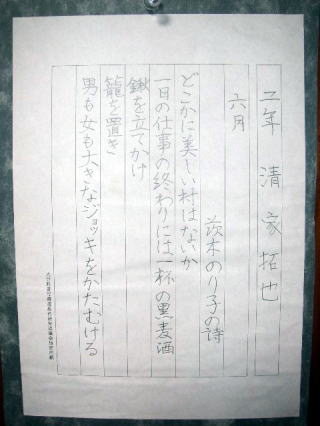 二年 清家拓也
六月
茨木のり子の詩
どこかに美しい村はないか
一日の仕事の終わりには一杯の黒麦酒
鍬を立てかけ
籠を置き
男も女も大きなジョッキをかたむける